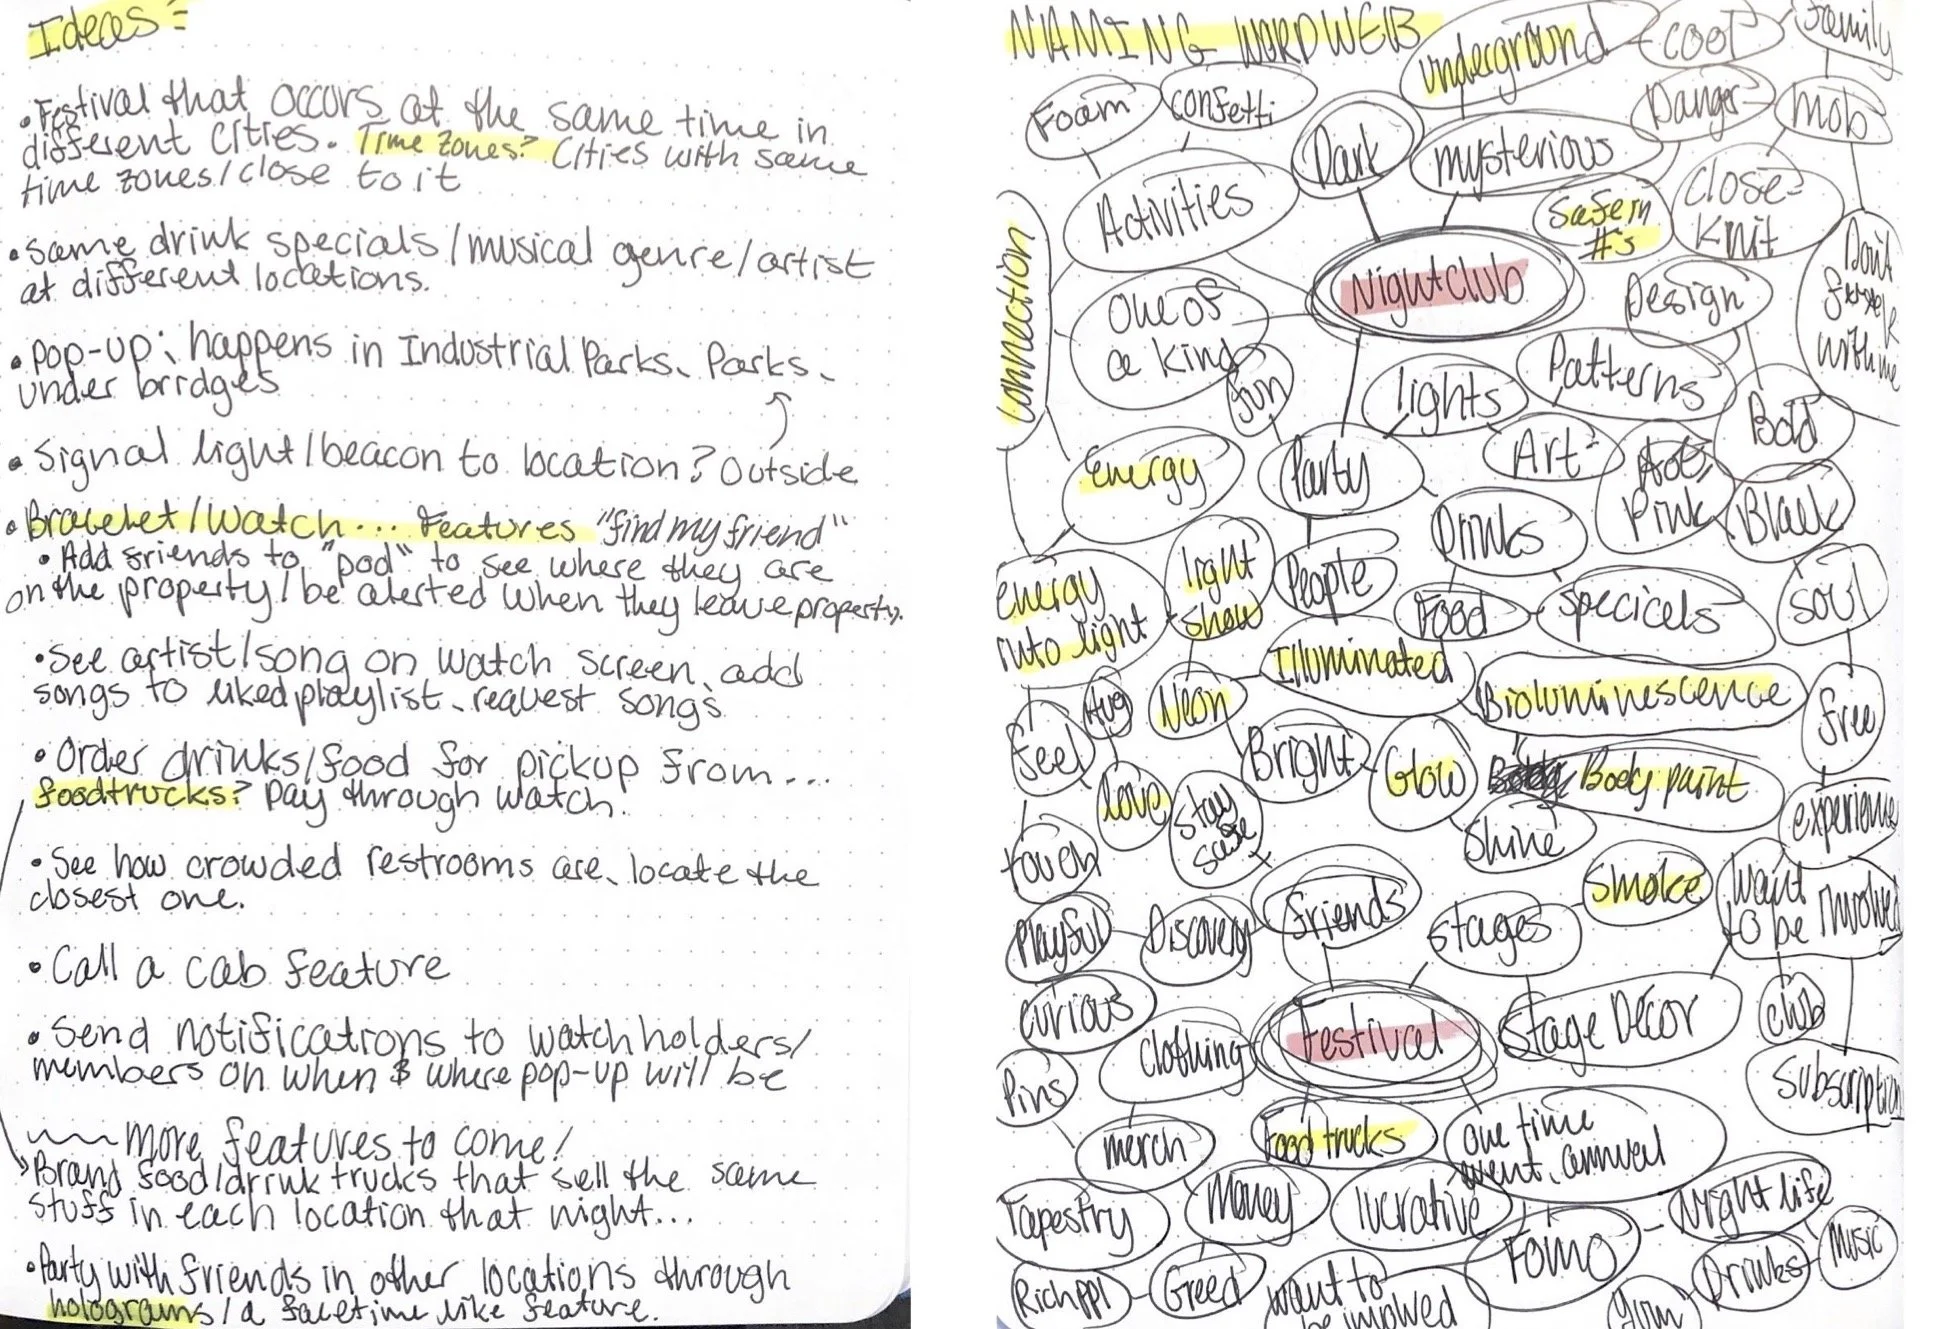 Ideas =
• Festival that occurs at the same time in
different cities. Time zones? Cities with same
time zones/close to it
• Same drink specials/musical genre/artist
at different locations.
• POP-UP: happens in Industrial Parks, Parks,
under bridges
• Signal light/beacon to location? Outside
• Bracelet/Watch... Features "find my friend"
• Add friends to "pod" to see where they are
on the property/be alerted when they leave property.
• See artist/song on watch screen, add
songs to liked playlist, request songs
• Order drinks/food for pickup from...
foodtrucks? Pay through watch.
• See how crowded restrooms are, locate the
closest one.
• Call a cab feature
• Send notifications to watch holders/
members on when & where pop-up will be
more features to come!
Brand food/drink trucks that sell the same
stuff in each location that night...
• Party with friends in other locations through
holograms/a facetime like feature.
NAMING WORDWEB
underground
cool
family
Foam
confetti
Dark
mysterious
Danger
mob
Activities
Safe in
#s
close-
knit
connection
Nightclub
One of
a kind
Design
Don't
with me
fun
lights
Patterns
Bold
energy
Party
Art
Pink
Black
Drinks
energy
into light
light
show
People
Food
specicels
soul
Illuminated
Bioluminescence
feel
Hug
Neon
free
Bright
Glow
Body paint
love
Stay
safe
Shine
experience
touch
friends
Smoke
want
to be involved
Playful
Discovery
stages
curious
clothing
Festival
Stage Décor
club
Pins
subscription
merch
Food trucks
one time
event, annual
Tapestry
Money
lucrative
FOMO
Night life
Music
Rich ppl
Greed
want to
be involved
Drinks